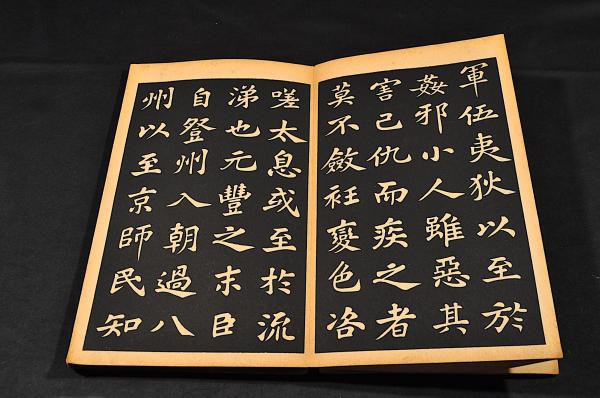 軍伍夷狄以至於
姦邪小人雖惡其
害己仇而疾之者
莫不斂衽變色咨
嗟太息或至於流
涕也元豐之末臣
自登州入朝過八
州以至京師民知